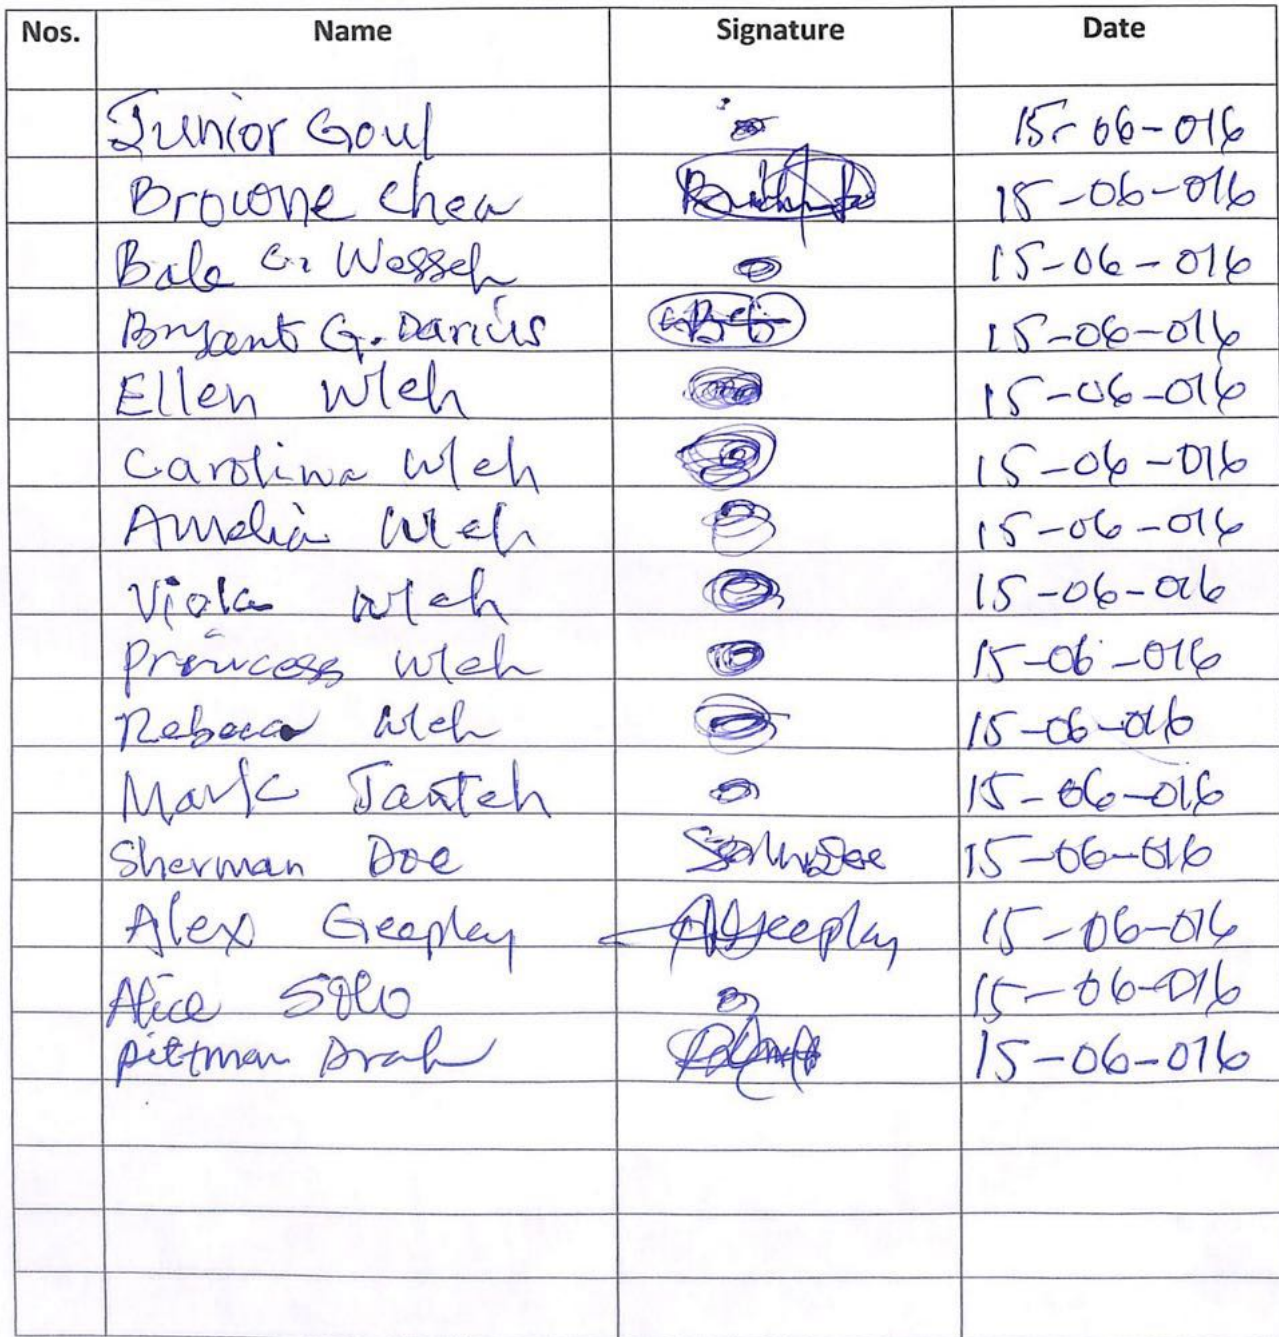 Nos. Name Signature Date
Junior Goul 15-06-016
Browne Chea 15-06-016
Bale G. Wesseh 15-06-016
Bryant G. Darius 15-06-016
Ellen Wleh 15-06-016
Carolina Wleh 15-06-016
Amelia Wleh 15-06-016
Viola Wleh 15-06-016
Princess Wleh 15-06-016
Rebeca Wleh 15-06-016
Mark Tanteh 15-06-016
Sherman Doe 15-06-016
Alex Geeplay AGeeplay 15-06-016
Alice Solo 15-06-016
Pittman Drah 15-06-016